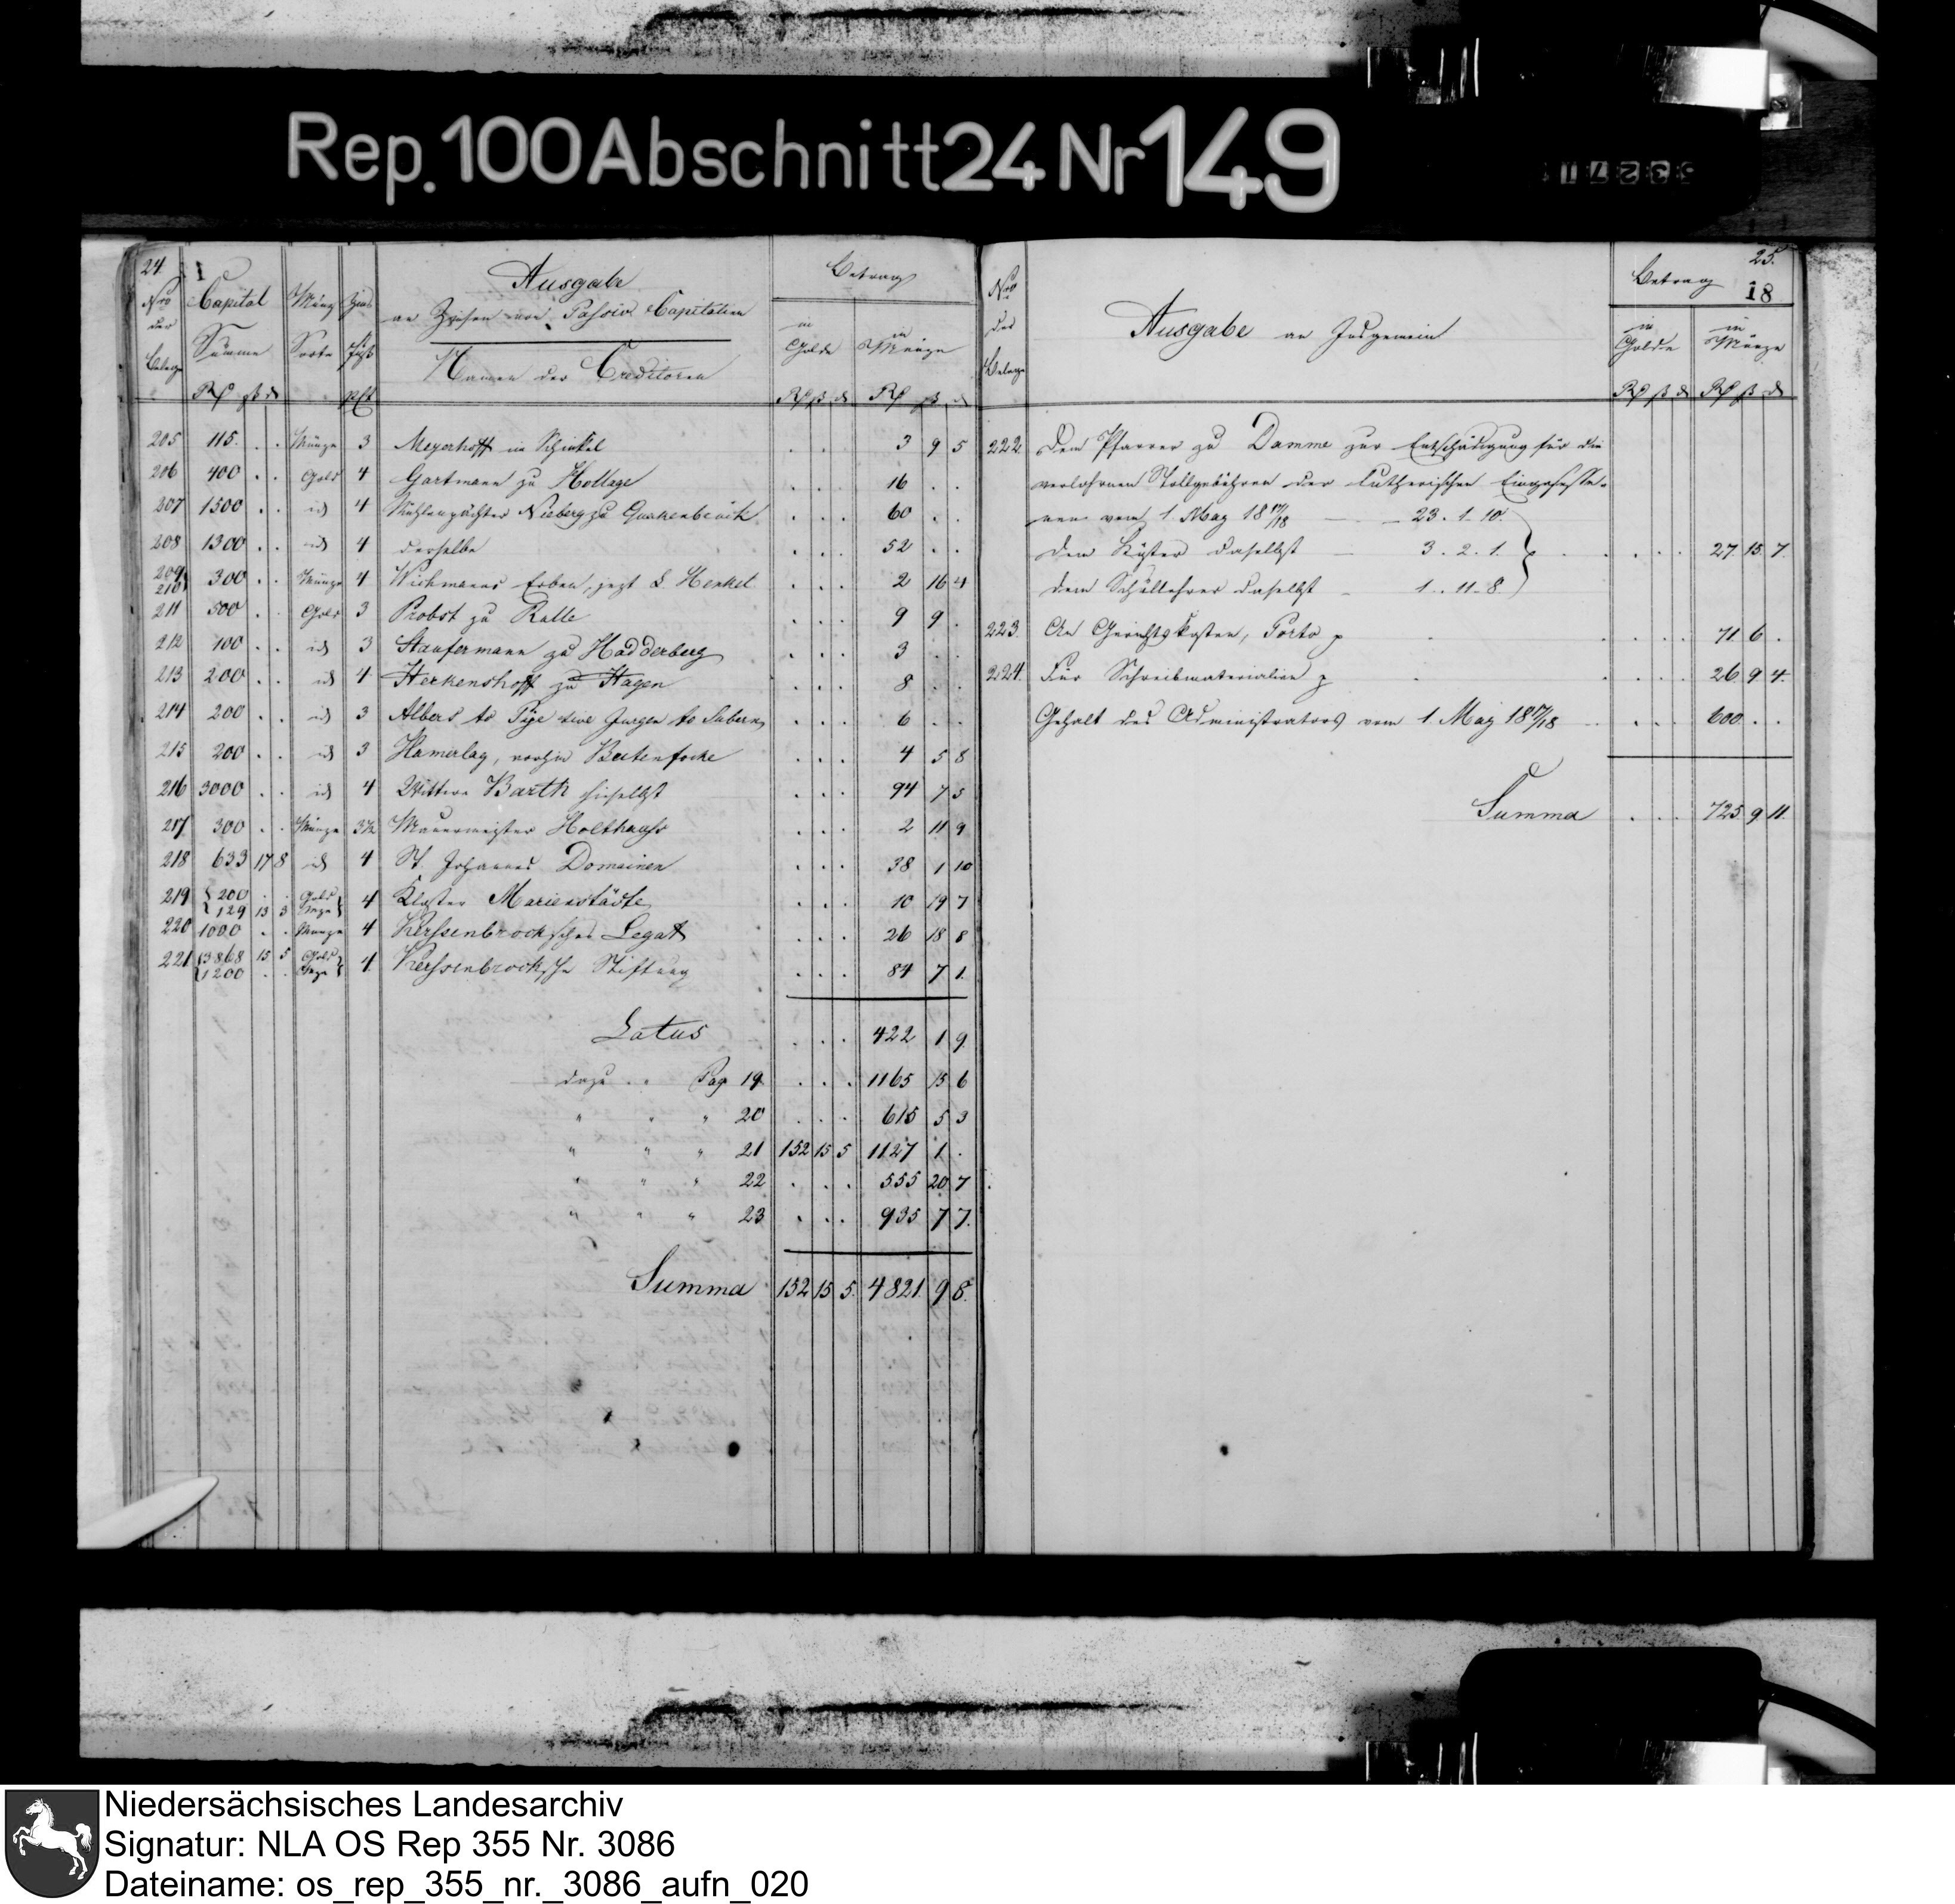 Rep. 100 Abschnitt 24 Nr 149
24
Nro der Belege
Capital Summe
Münz Sorte
Zins Fuß
pCt
Ausgabe
an Zinsen von Passiv Capitalien
Namen der Creditoren
Betrag
in Golde in Münze
205 115 . . Münze 3 Meyerhoff im Schinkel . . . 3 9 5
206 400 . . Gold 4 Gartmann zu Hollage . . . 16 . .
207 1500 . . id 4 Mühlenpächter Nieberg zu Quakenbrück . . . 60 . .
208 1300 . . id 4 derselbe . . . 52 . .
209 210 300 . . Münze 4 Wichmanns Erben, jezt L. Henkel . . . 2 16 4
211 500 . . Gold 3 Probst zu Rulle . . . 9 9 .
212 100 . . id 3 Staufermann zu Hadderberg . . . 3 . .
213 200 . . id 4 Herkenshoff zu Hagen . . . 8 . .
214 200 . . id 3 Albers to Pye sive Jurgen to . . . 6 . .
215 200 . . id 3 Hamerlag, vorhin . . . 4 5 8
216 3000 . . id 4 Wittwe Barth hieselbst . . . 94 7 5
217 300 . . Münze 3½ Mauermeister Holthaus . . . 2 11 9
218 633 17 8 id 4 St. Johannes Domainen . . . 38 1 10
219 { 200 . . Gold
129 13 3 Mze } 4 Kloster Marienstädte . . . 10 19 7
220 1000 . . Münze 4 Kerssenbrocksches Legat . . . 26 18 8
221 { 3868 15 5 Gold
1200 . . Mze } 4 Kerssenbrocksche Stiftung . . . 84 7 1
Latus . . . 422 1 9
dazu . . Pag 19 . . . 1165 15 6
" " " 20 . . . 615 5 3
" " " 21 152 15 5 1127 1 .
" " " 22 . . . 555 20 7
" " " 23 . . . 935 7 7
Summa 152 15 5 4821 9 8
25.
18
Nro der Belege
Ausgabe an Insgemein
Betrag
in Golde in Münze
222 Dem Pfarrer zu Damme zur Entschädigung für die
verlohrnen Stollgebühren der lutherischen Eingesesse-
nen vom 1. May 18 17/18 — 23. 1. 10.
dem Küster daselbst — 3. 2. 1. } . . . 27. 15. 7.
dem Schullehrer daselbst — 1. 11. 8.
223. An Gerichtskosten, Porto p . . . 71 6 .
224. Für Schreibmaterialien p . . . 26 9 4.
Gehalt des Administrators vom 1. May 18 17/18 . . . 600 . .
Summa . . . 725 9 11.
Niedersächsisches Landesarchiv
Signatur: NLA OS Rep 355 Nr. 3086
Dateiname: os_rep_355_nr._3086_aufn_020